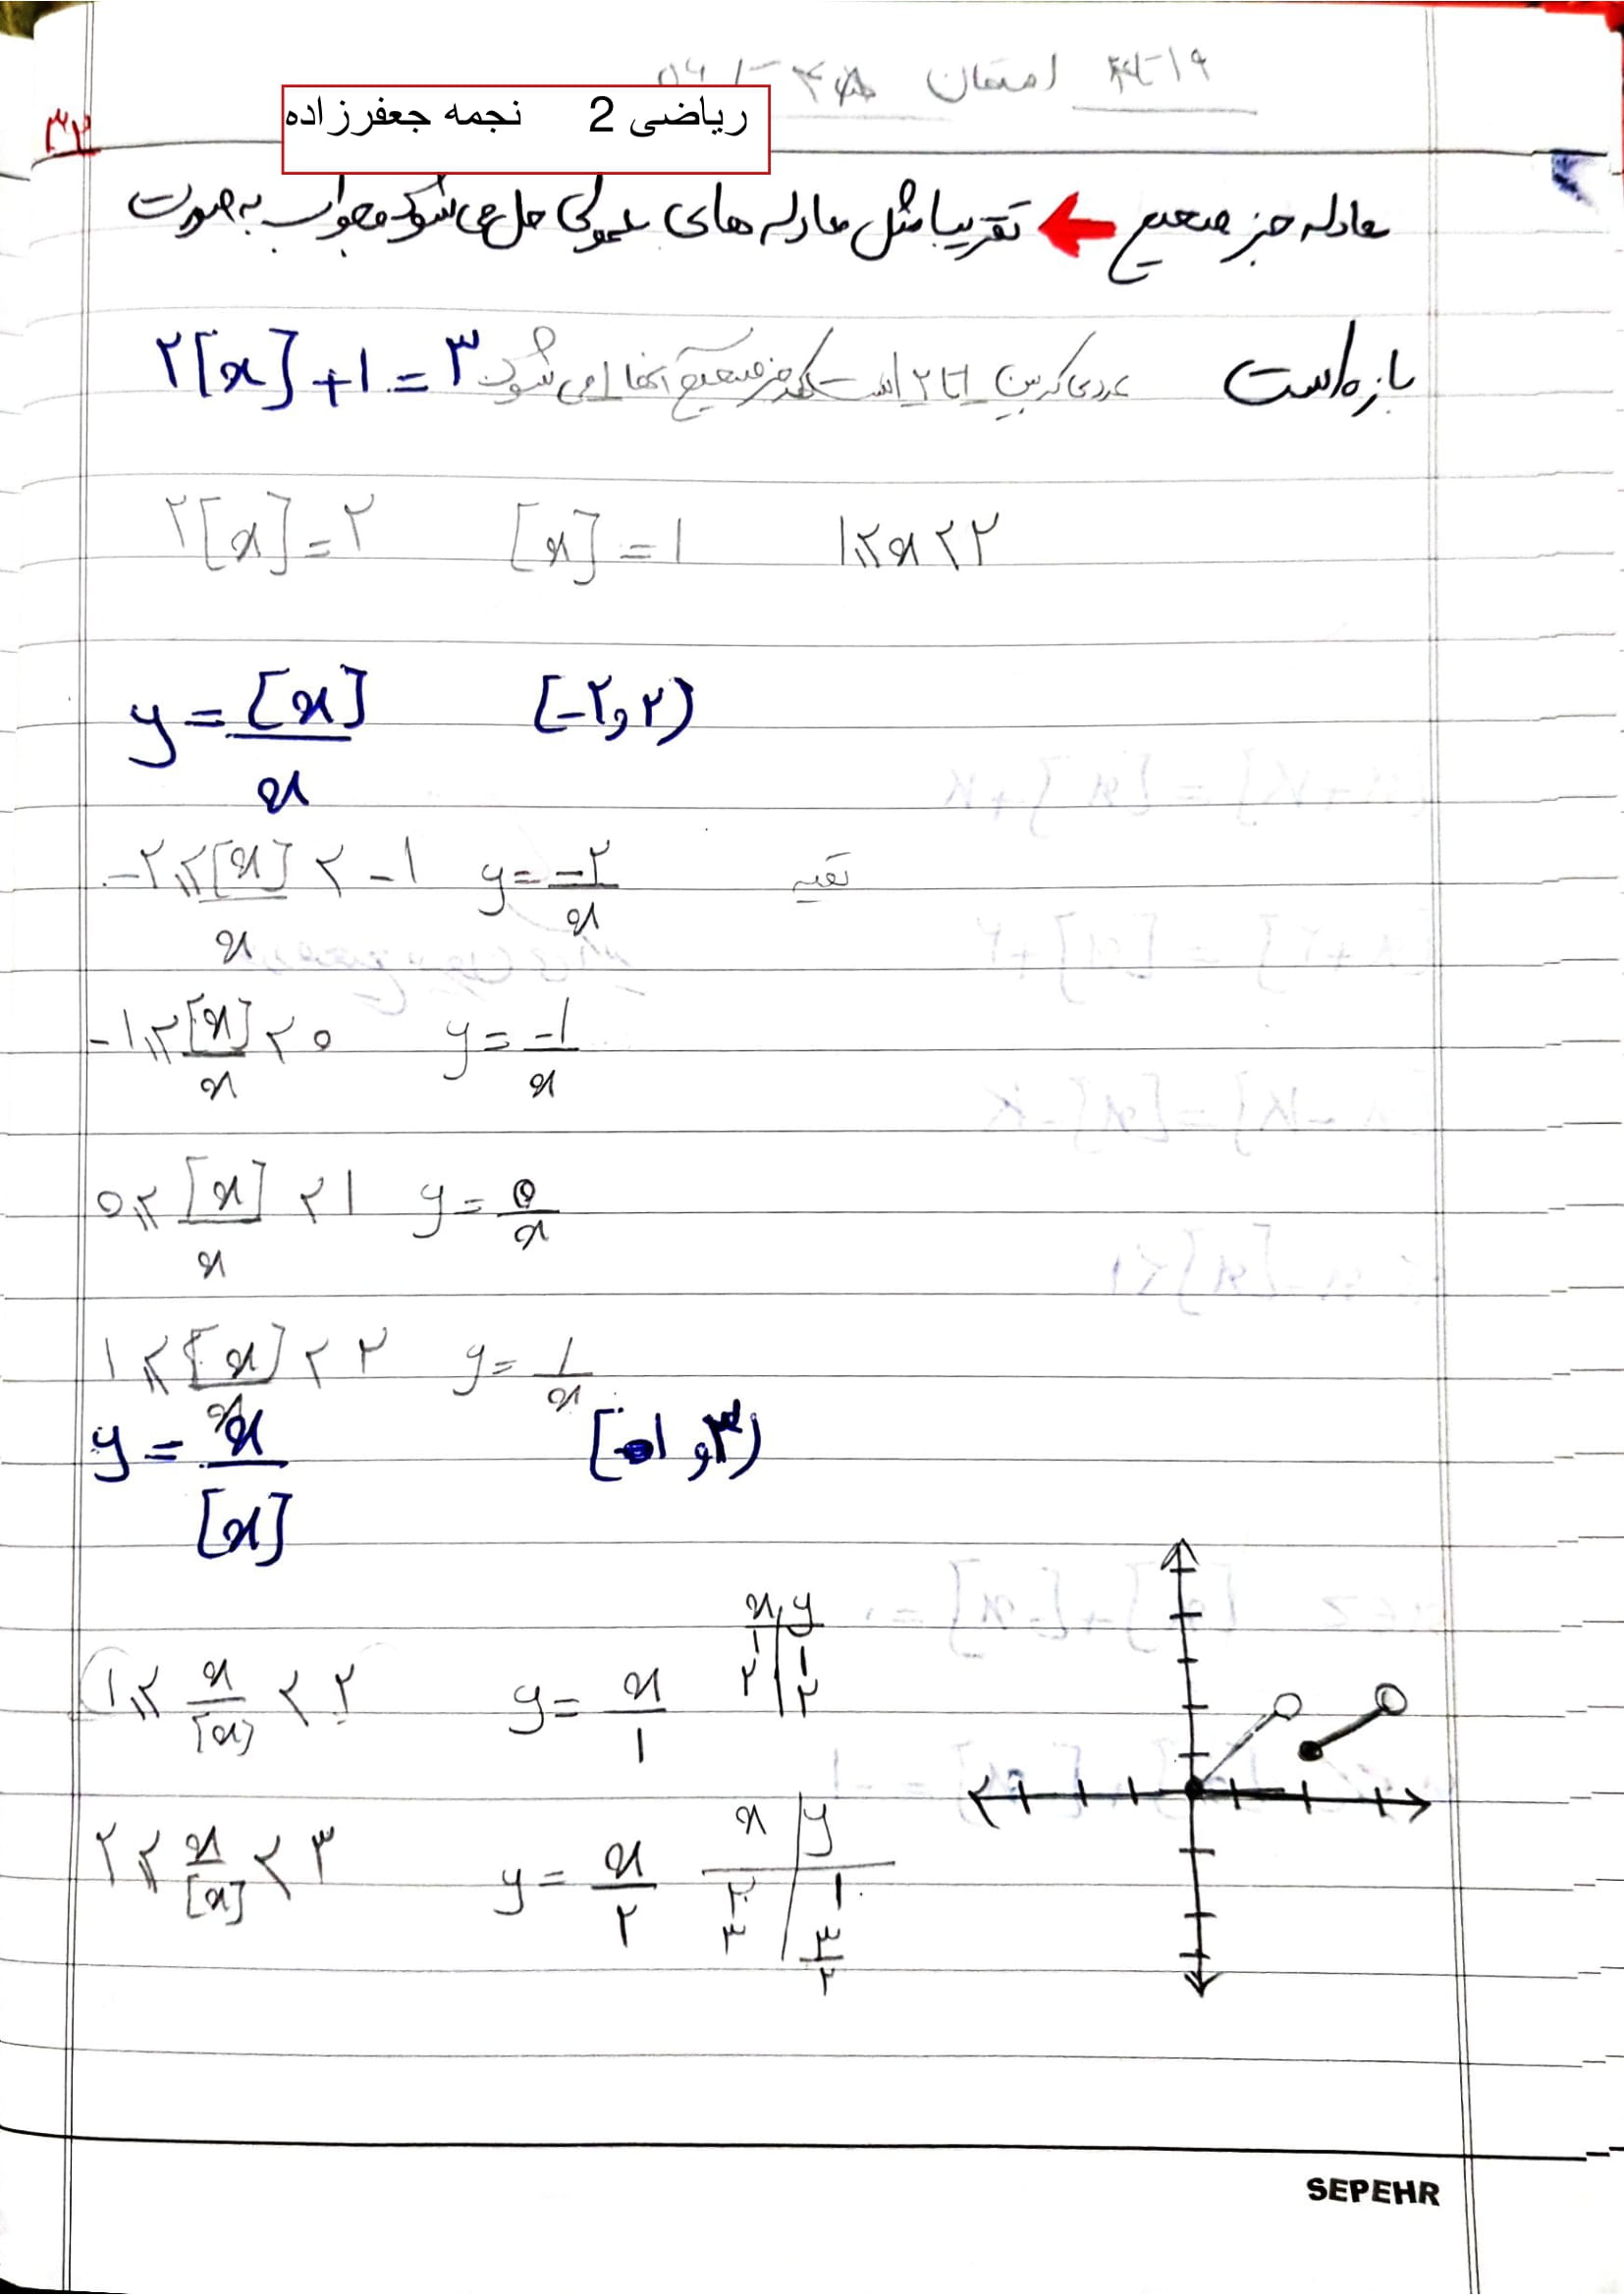 ۱۹-۳۲ امتحان
ریاضی 2 نجمه جعفرزاده
۳۳
معادله جز صحیح ← تقریبا مثل معادله های معمولی حل می شود و جواب به صورت
بازه است
عددی که بین ۱ تا ۲ است که جز صحیح آنها ۱ می شود
۲[x] + ۱ = ۳
۲[x] = ۲ [x] = ۱ ۱ ≤ x < ۲
y = [x]/x [-۲, ۲)
-۲ ≤ [x]/x < -۱ y = -۲/x
-۱ ≤ [x]/x < ۰ y = -۱/x
۰ ≤ [x]/x < ۱ y = ۰/x
۱ ≤ [x]/x < ۲ y = ۱/x
y = x/[x] [۱, ۳)
۱ ≤ x/[x] < ۲ y = x/۱
x y
۱ ۱
۲ ۲
۲ ≤ x/[x] < ۳ y = x/۲
x y
۲ ۱
۳ ۳/۲
SEPEHR